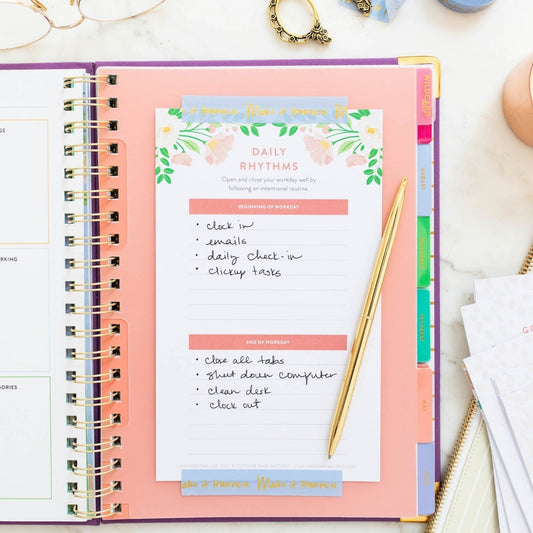 Make it Happen
DAILY
RHYTHMS
Open and close your workday well by
following an intentional routine.
BEGINNING OF WORKDAY
• clock in
• emails
• daily check-in
• clickup tasks
END OF WORKDAY
• close all tabs
• shut down computer
• clean desk
• clock out
MAKE IT HAPPEN MAKE IT HAPPEN
WILDCARD
MAY